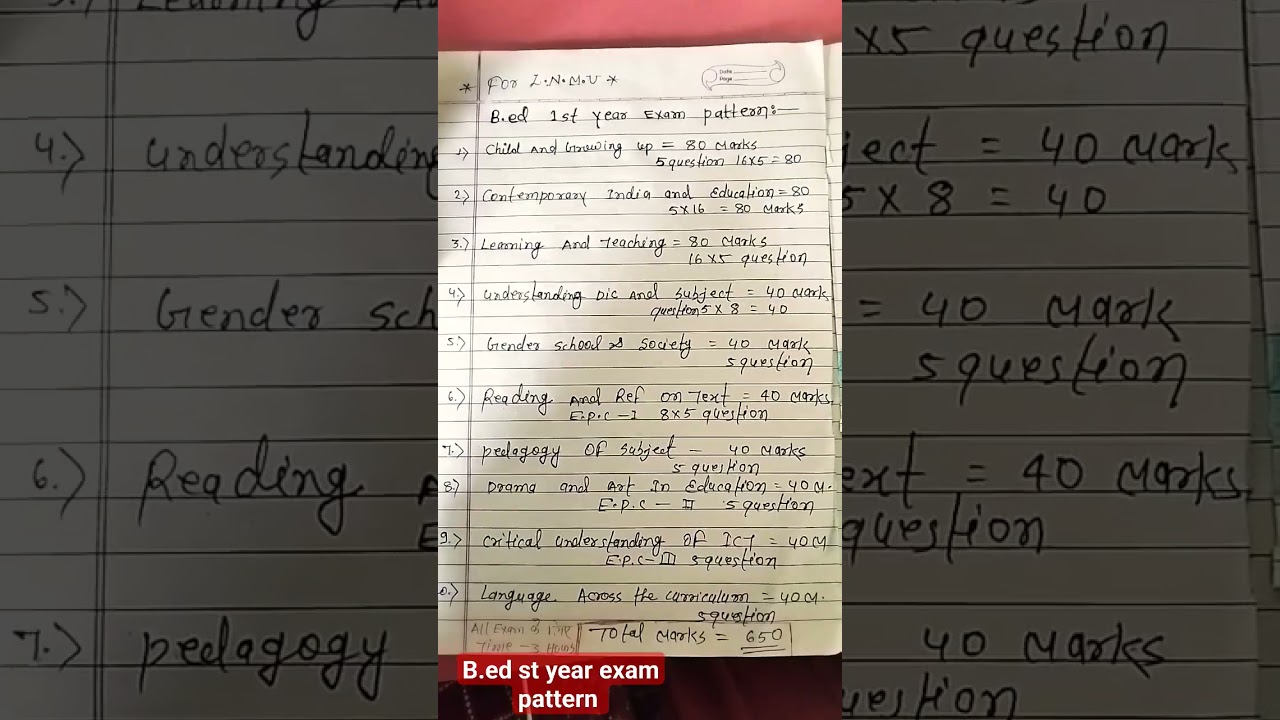 * For L.N.M.U *
Date
Page
B.ed 1st year Exam pattern:—
1) Child And Growing up = 80 Marks
5 question 16x5 = 80
2) Contemporary India and Education = 80
5x16 = 80 Marks
3.) Learning And Teaching = 80 Marks
16x5 question
4.) Understanding Dic And Subject = 40 Mark
question 5 x 8 = 40
5.) Gender school & Society = 40 Mark
5 question
6.) Reading And Ref on Text = 40 Marks
E.P.C-I 8x5 question
7.) pedagogy Of Subject - 40 Marks
5 question
8) Drama and Art In Education = 40 M.
E.P.C - II 5 question
9.) critical understanding Of ICT = 40 M
E.P.C-III 5 question
0.) Language Across the curriculum = 40 M.
5 question
All Exam
Time - 3 Hours
Total Marks = 650
B.ed st year exam
pattern
x5 question
4.) Understanding
ject = 40 Mark
5 x 8 = 40
5.) Gender sch
= 40 Mark
5 question
6.) Reading
ext = 40 Marks
question
7.) pedagogy
40 Marks